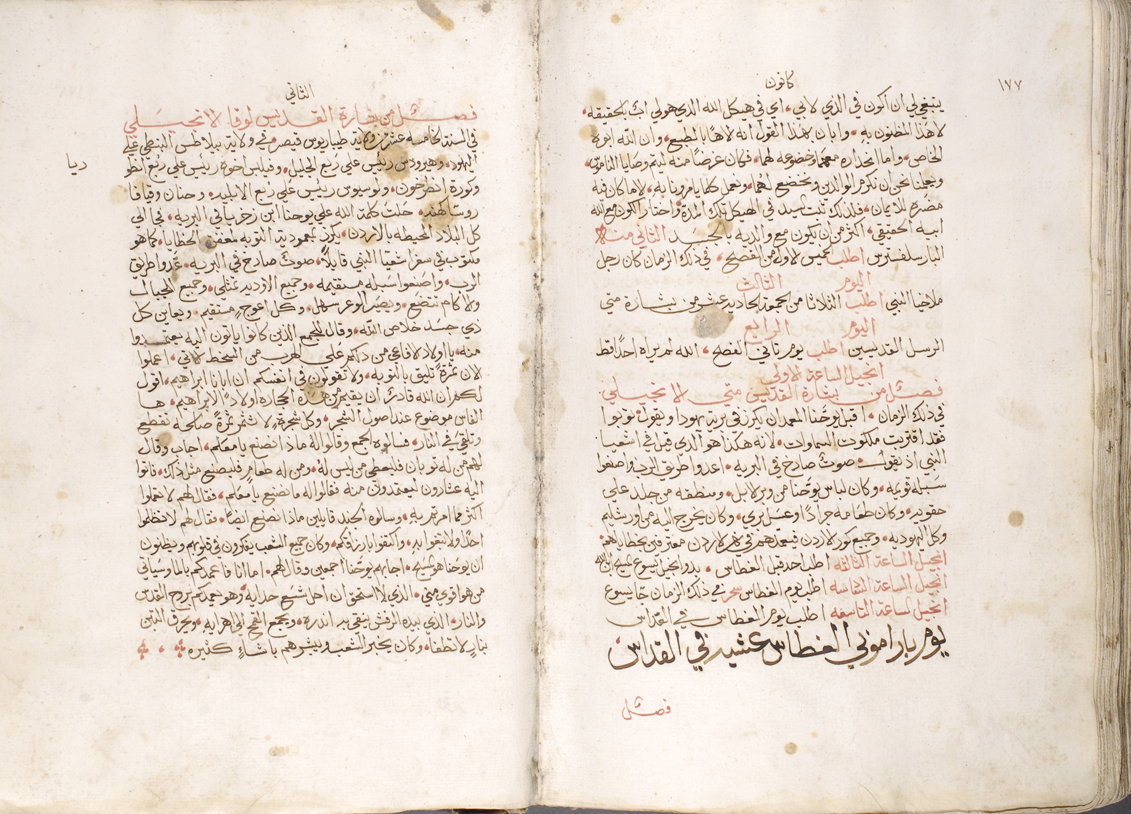 ١٧٧
كانون
ينبغي لي ان اكون في الذي لابي، اي في هيكل الله الذي هو لي اب بالحقيقه،
لا هذا المظنون به وابان بهذا القول انه لاهنا بالطبع وان الله ابوه
الخاص واما انحداره معهما وخضوعه لهما فكان عرضا منه ليتم وصايا الناموس
ويعلمنا نحن ان نكرم الوالدين ونخضع لهما ونعمل كلما يامرونا به، لاما كان فيه
مضرة للايمان فلذلك ثبت سيدنا في الهيكل تلك المدة واختار الكون مع الله
ابيه الحقيقي، اكثر من ان يكون مع والديه بالجسد الثاني منه
البار سلفسترس اطلب خميس الاول من الفصح، في ذلك الزمان كان رجل
اليوم الثالث
ملاخيا النبي اطلب الثلاثا من الجمعة الحاديه عشر من بشارة متي
اليوم الرابع
الرسل القديسين اطلب يوم ثاني الفصح، الله لم يراه احدا قط
انجيل الساعة الاولي
فصل من بشارة القديس متي الانجيلي
في ذلك الزمان اقبل يوحنا المعمدان يكرز في برية يهودا ويقول توبوا
فقد اقتربت ملكوت السماوات لانه هكذا هو الذي قيل في اشعيا
النبي اذ يقول صوت صارخ في البريه اعدوا طريق الرب واصنعوا
سبله قويمه وكان لباس يوحنا من وبر الابل ومنطقه من جلد علي
حقويه وكان طعامه جرادا وعسل بري وكان يخرج اليه من اورشليم
وكل اليهوديه وجميع كور الاردن فيعمدهم في نهر الاردن معترفين بخطاياهم
انجيل الساعة الثالثه اطلب احد قبل الغطاس بدو انجيل يسوع المسيح ابن الله
انجيل الساعة السادسه اطلب يوم الغطاس سحر في ذلك الزمان جا يسوع
انجيل الساعة التاسعه اطلب يوم الغطاس في القداس
يوم باراموني الغطاس عشية في القداس
فصل
الثاني
فصل من بشارة القديس لوقا الانجيلي
في السنة الخامسه عشر من ولاية طيباريوس قيصر في ولاية بيلاطس البنطي علي
اليهود، وهيرودس رييس علي ربع الجليل وفيلبس اخوه رييس علي ربع انطو
ريا
وكورة انطرخون ولوسيوس رييس علي ربع الابليه وحنان وقيافا
روسا كهنه حلت كلمة الله علي يوحنا ابن زخريا في البريه فجا الي
كل البلاد المحيطه بالاردن يكرز بمعمودية التوبه لمغفرة الخطايا كما هو
مكتوب في سفر اشعيا النبي قايلا صوت صارخ في البريه اعدوا طريق
الرب واصنعوا سبله مستقيمه وجميع الاوديه تمتلي وجميع الجبال
والاكام تتضع ويصير الوعر سهل وكل اعوج مستقيم ويعاين كل
ذي جسد خلاص الله وقال للجمع الذين كانوا ياتون اليه ليعتمدوا
منه يا اولاد الافاعي من دلكم علي الهرب من السخط الاتي، اعملوا
الان ثمرة تليق بالتوبه ولا تقولون في انفسكم ان ابانا ابراهيم، اقول
لكم ان الله قادر ان يقيم من هذه الحجاره اولاد لابراهيم ها
الفاس موضوع عند اصول الشجر وكل شجرة لا تثمر ثمرة صالحه تقطع
وتلقي في النار فسالوه الجمع وقالوا له ماذا نصنع يا معلم، اجاب وقال
لهم من له ثوبان فليعطي من ليس له ومن له طعام فليصنع مثل ذلك فاتوا
اليه عشارون ليعتمدون منه فقالوا له ما نصنع يا معلم فقال لهم لا تعملوا
اكثر مما امرتم به وسالوه الجند قايلين ماذا نصنع ايضا فقال لهم لا تظلموا
احدا ولا تبغوا به واكتفوا بارزاقكم وكان جميع الشعب يفكرون في قلوبهم ويظنون
ان يوحنا هو المسيح اجابهم يوحنا اجمعين وقال لهم اما انا فاعمدكم بالما وسياتي
من هو اقوي مني، الذي لا استحق ان احل شسع حذايه وهو يعمدكم بروح القدس
والنار الذي بيده الرفش ينقي به اندره ويجمع القمح الي اهرايه ويحرق التبن
بنار لا تطفا وكان يخبر الشعب ويبشرهم باشياء كثيره